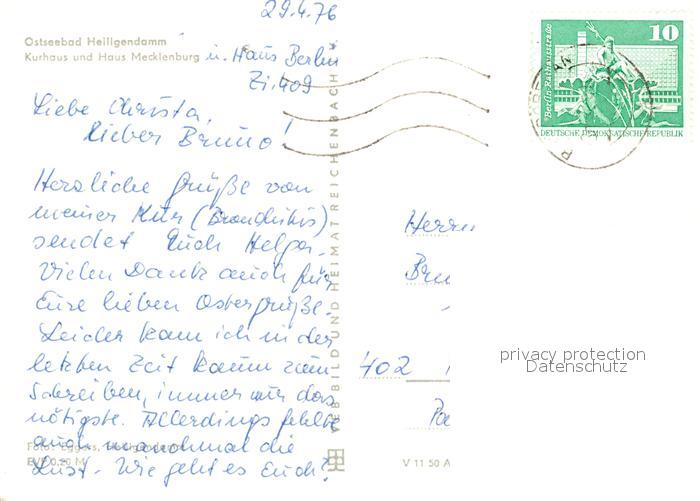 29.4.76
Ostseebad Heiligendamm
Kurhaus und Haus Mecklenburg u. Haus Berlin
Zi. 409
Liebe Christa,
lieber Bruno!
Herzliche Grüße von
meiner Kur (Bronchitis)
sendet Euch Helga.
Vielen Dank auch für
Eure lieben Ostergrüße.
Leider kam ich in der
letzten Zeit kaum zum
Schreiben, immer nur das
nötigste. Allerdings fehlte
auch manchmal die
Lust. Wie geht es Euch?
EVP 0,20 M
VEB BILD UND HEIMAT REICHENBACH i. V.
V 11 50 A
10
Berlin, Rathausstraße
DEUTSCHE DEMOKRATISCHE REPUBLIK
Herrn
Bru
402
privacy protection
Datenschutz